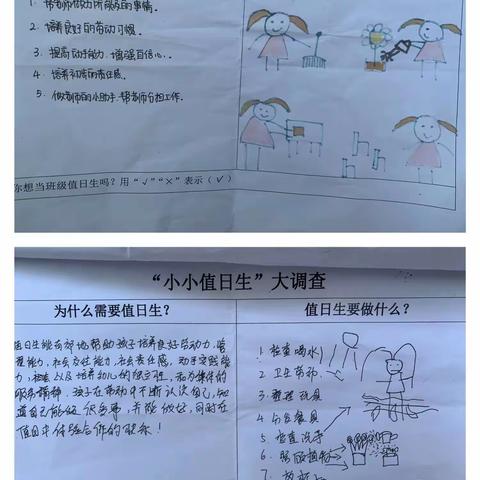 1. 帮老师做力所能及的事情。
2. 培养良好的劳动习惯。
3. 提高动手能力.增强自信心.
4. 培养初步的责任感.
5. 做老师的小助手.帮老师分担工作。
你想当班级值日生吗？用“√”“×”表示（√）
“小小值日生”大调查
为什么需要值日生？
值日生要做什么？
值日生能有效地帮助孩子培养良好劳动力，管
理能力，社会交往能力，社会责任感，动手实践能
力，以及培养幼儿的独立性，
服务精神。孩子在劳动中不断认识自己，知
道自己能做很多事，并能做好，同时在
值日中体验合作的快乐！
1. 检查喝水
2. 卫生劳动
3. 整理玩具
4. 分发餐具
5. 检查洗手
6. 照顾植物
7.